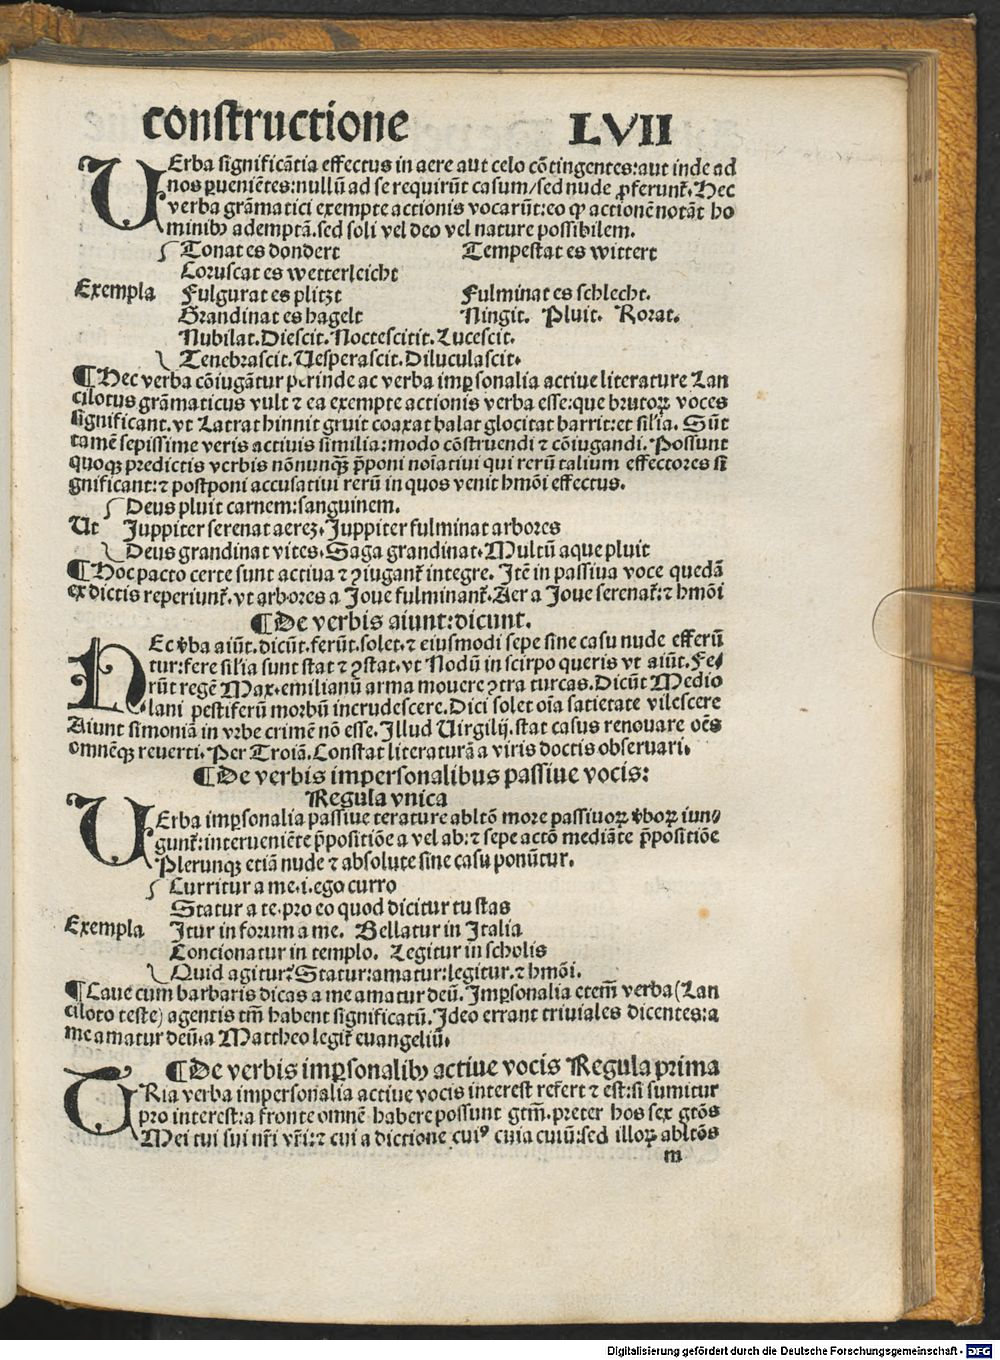 constructione LVII
VErba significātia effectus in aere aut celo cōtingentes:aut inde ad
nos ꝑueniētes:nullū ad se requirūt casum/sed nude ꝓferunt̄. Hec
verba grāmatici exempte actionis vocarūt:eo ꝙ actionē notāt ho
minibꝰ ademptā.sed soli vel deo vel nature possibilem.
Tonat es dondert Tempestat es wittert
Coruscat es wetterleicht
Exempla Fulgurat es plitzt Fulminat es schlecht.
Grandinat es hagelt Ningit. Pluit. Rorat.
Nubilat.Diescit.Noctescitit.Lucescit.
Tenebrascit.Vesperascit.Diluculascit.
¶Hec verba cōiugātur perinde ac verba imꝑsonalia actiue literature Lan
cilotus grāmaticus vult ⁊ ea exempte actionis verba esse:que brutoꝝ voces
significant.vt Latrat hinnit gruit coaxat balat glocitat barrit:et sil'ia. Sūt
tamē sepissime veris actiuis similia:modo cōstruendi ⁊ cōiugandi. Possunt
quoqꝫ predictis verbis nōnunqꝫ p̄poni noīatiui qui rerū talium effectores si
gnificant:⁊ postponi accusatiui rerū in quos venit hmōi effectus.
Deus pluit carnem:sanguinem.
Ut Juppiter serenat aereꝫ.Juppiter fulminat arbores
Deus grandinat vites.Saga grandinat.Multū aque pluit
¶Hoc pacto certe sunt actiua ⁊ ꝯiugant̄ integre. Itē in passiua voce quedā
ex dictis reperiunt̄.vt arbores a Joue fulminant̄.Aer a Joue serenat̄:⁊ hmōi
¶De verbis aiunt:dicunt.
HEc v̄ba aiūt.dicūt.ferūt.solet.⁊ eiusmodi sepe sine casu nude efferū
tur:fere sil'ia sunt stat ⁊ ꝯstat.vt Nodū in scirpo queris vt aiūt.Fe/
rūt regē Max.emilianū arma mouere ꝯtra turcas.Dicūt Medio
lani pestiferū morbū incrudescere.Dici solet oīa satietate vilescere
Aiunt simoniā in vrbe crimē nō esse.Illud Virgilij.stat casus renouare oēs
omnēqꝫ reuerti.Per Troiā.Constat literaturā a viris doctis obseruari.
¶De verbis impersonalibus passiue vocis:
Regula vnica
VErba imꝑsonalia passiue terature abltō more passiuoꝝ v̄boꝝ iun/
gunt̄:interueniēte p̄positiōe a vel ab:⁊ sepe actō mediāte p̄positiōe
Plerunqꝫ etiā nude ⁊ absolute sine casu ponūtur.
Curritur a me.i.ego curro
Statur a te.pro eo quod dicitur tu stas
Exempla Itur in forum a me. Bellatur in Italia
Concionatur in templo. Legitur in scholis
Quid agitur?Statur:amatur:legitur.⁊ hmōi.
¶Caue cum barbaris dicas a me amatur deū.Imꝑsonalia etem̄ verba(Lan
ciloto teste)agentis tm̄ habent significatū.Ideo errant triuiales dicentes:a
me amatur deū.a Mattheo legit̄ euangeliū.
¶De verbis imꝑsonalibꝰ actiue vocis Regula prima
TRia verba impersonalia actiue vocis interest refert ⁊ est:si sumitur
pro interest:a fronte omnē habere possunt gtm̄.preter hos sex gtōs
Mei tui sui nr̄i vr̄i:⁊ cui a dictione cuiꝰ cuia cuiū:sed illoꝝ abltōs
m
Digitalisierung gefördert durch die Deutsche Forschungsgemeinschaft - DFG